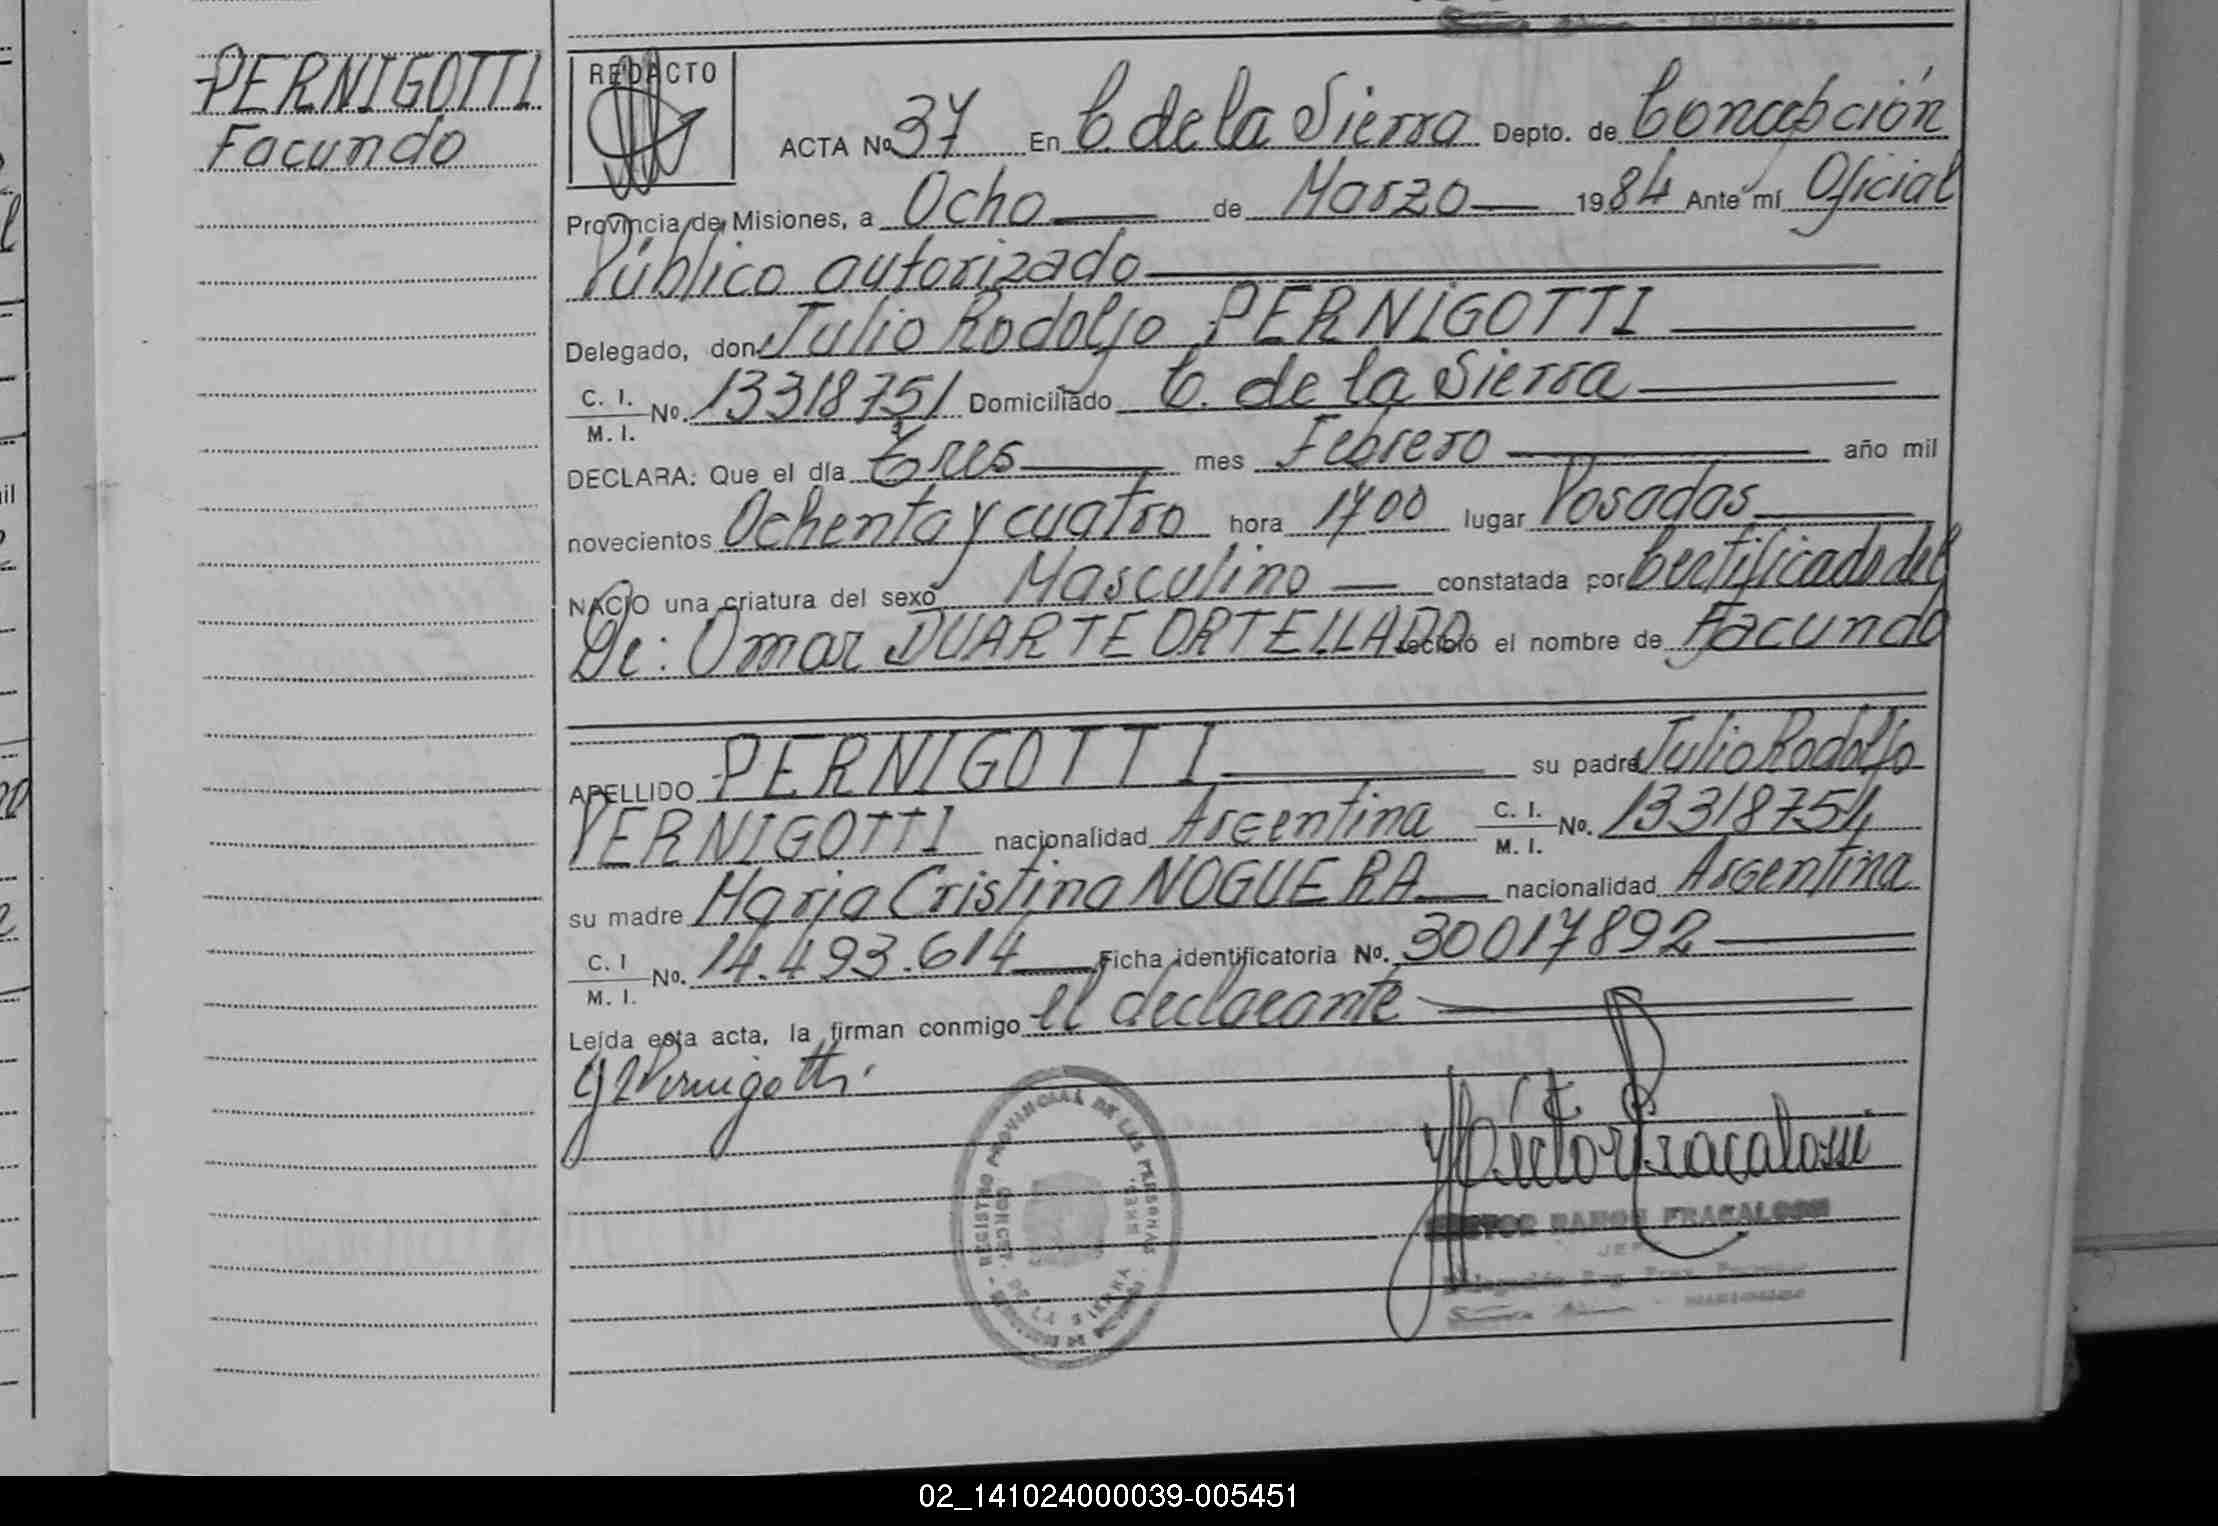 PERNIGOTTI
Facundo
REDACTO
ACTA Nº 37 En C. de la Sierra Depto. de Concepción
Provincia de Misiones, a Ocho de Marzo 1984 Ante mí Oficial
Público autorizado
Delegado, don Julio Rodolfo PERNIGOTTI
C. I. / M. I. Nº. 13318751 Domiciliado C. de la Sierra
DECLARA: Que el día tres mes Febrero año mil
novecientos Ochenta y cuatro hora 1700 lugar Posadas
NACIO una criatura del sexo Masculino constatada por Certificado del
Dr: Omar DUARTE ORTELLADO recibió el nombre de Facundo
APELLIDO PERNIGOTTI su padre Julio Rodolfo
PERNIGOTTI nacionalidad Argentina C. I. / M. I. Nº. 13318751
su madre Maria Cristina NOGUERA nacionalidad Argentina
C. I / M. I. Nº. 14.493.614 Ficha identificatoria Nº. 30017892
Leída esta acta, la firman conmigo el declarante
Pernigotti
REGISTRO PROVINCIAL DE LAS PERSONAS
DE LA SIERRA
Hector Fracalossi
HECTOR RAMON FRACALOSSI
JEFE
02_141024000039-005451